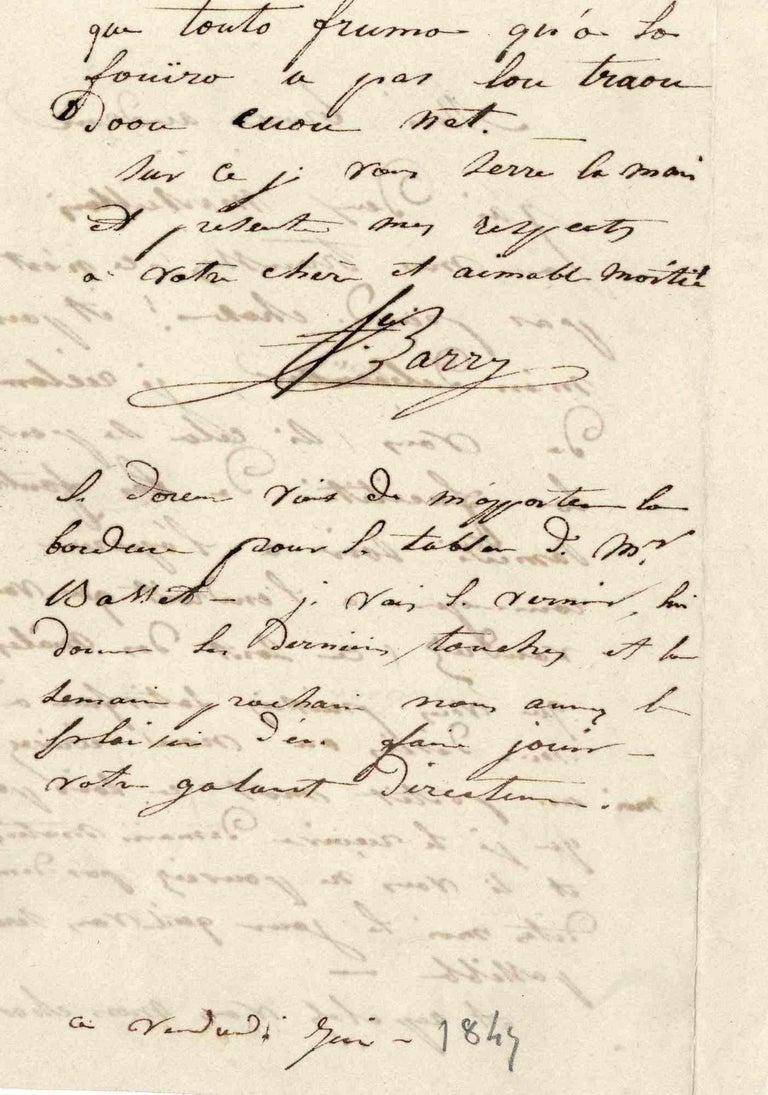 que touto frumo qu'a la
fouïro a pas lou traou
doou cuou nèt.
sur ce je vous serre la main
et présente mes respects
à votre chère et aimable moitié
Barry
le doreur vient de m'apporter la
bordure pour le tableau de Mr
Basset – je vais le vernir, lui
donner les derniers touches et la
semaine prochaine nous aurons le
plaisir d'en faire jouir –
votre galant Directeur.
ce vendredi Juin – 1847